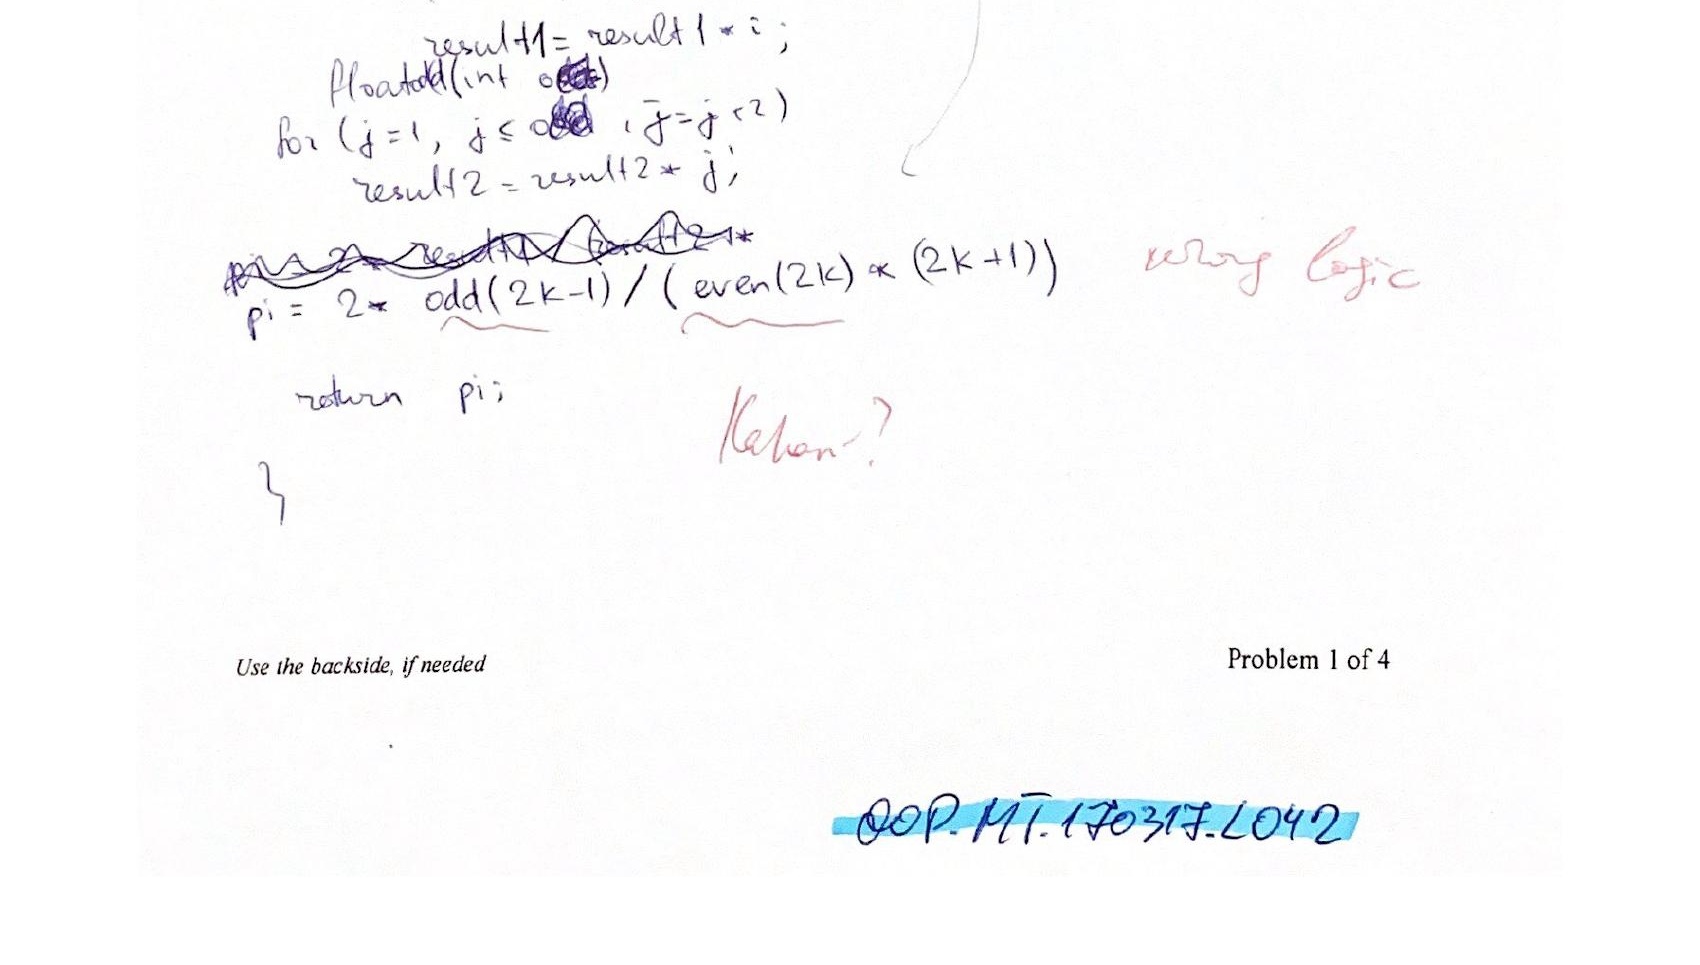 result1 = result1 * i ;
float odd(int
for (j=1, j ≤ odd , j=j+2)
result2 = result2 * j;
pi = 2* odd(2k-1) / (even(2k) * (2k+1))
wrong logic
return pi;
Kahan-?
}
Use the backside, if needed
Problem 1 of 4
OOP.MT.170317.L042